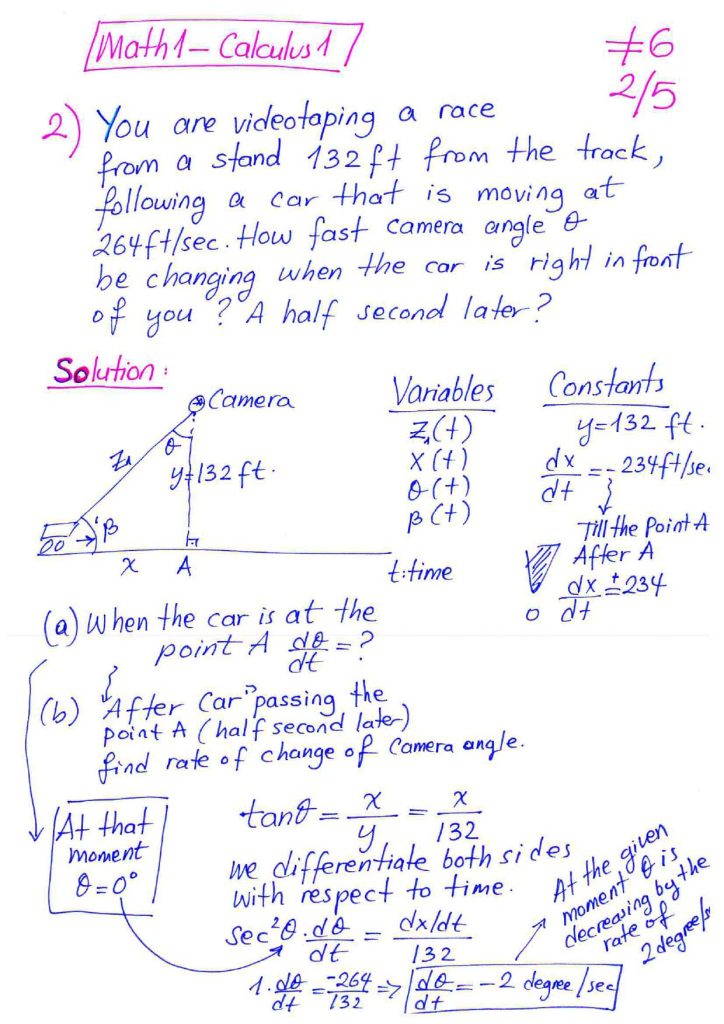 Math1 – Calculus1
#6
2/5
2) You are videotaping a race
from a stand 132ft from the track,
following a car that is moving at
264ft/sec. How fast camera angle θ
be changing when the car is right in front
of you? A half second later?
Solution:
Camera
θ
y=132 ft.
β
x A
Variables
X(t)
θ(t)
β(t)
t:time
Constants
y=132 ft.
dx/dt = -234ft/se
Till the Point A
After A
dx/dt = + 234
(a) When the car is at the
point A dθ/dt = ?
(b) After Car passing the
point A (half second later)
find rate of change of Camera angle.
At that
moment
θ=0°
tanθ = x/y = x/132
we differentiate both sides
with respect to time.
sec²θ.dθ/dt = dx/dt/132
1.dθ/dt = -264/132 => dθ/dt = -2 degree/sec
At the given
moment θ is
decreasing by the
rate of
2 degree/s